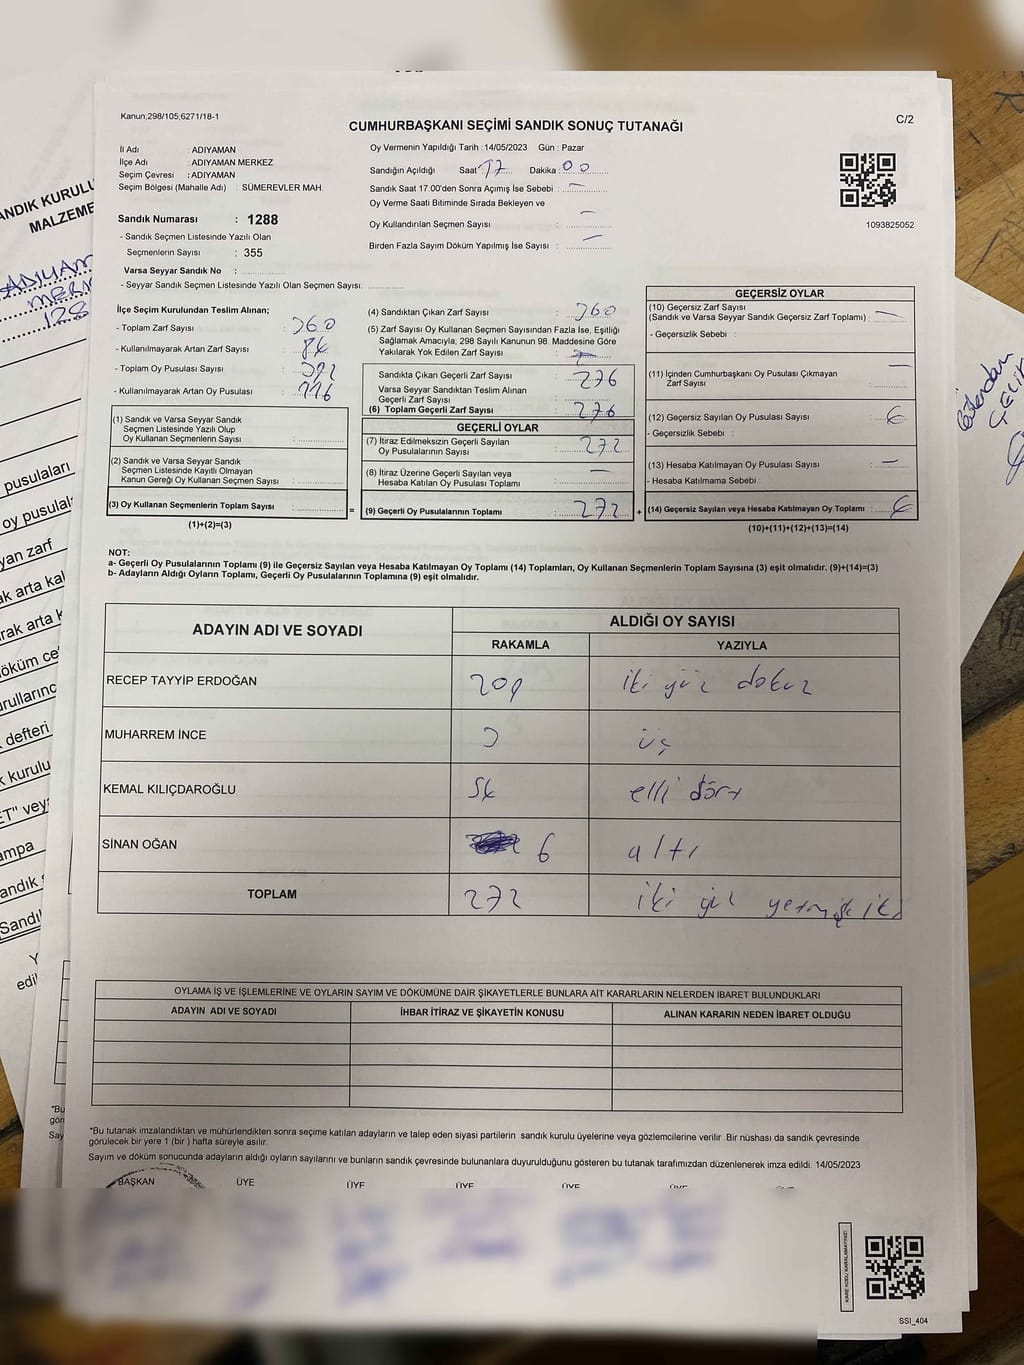 Kanun;298/105,6271/18-1
C/2
CUMHURBAŞKANI SEÇİMİ SANDIK SONUÇ TUTANAĞI
İl Adı : ADIYAMAN
İlçe Adı : ADIYAMAN MERKEZ
Seçim Çevresi : ADIYAMAN
Seçim Bölgesi (Mahalle Adı) : SÜMEREVLER MAH.
Sandık Numarası : 1288
- Sandık Seçmen Listesinde Yazılı Olan
Seçmenlerin Sayısı : 355
Varsa Seyyar Sandık No :
- Seyyar Sandık Seçmen Listesinde Yazılı Olan Seçmen Sayısı:
Oy Vermenin Yapıldığı Tarih :14/05/2023 Gün : Pazar
Sandığın Açıldığı Saat 17 Dakika : 00
Sandık Saat 17.00'den Sonra Açımış İse Sebebi : —
Oy Verme Saati Bitiminde Sırada Bekleyen ve
Oy Kullandırılan Seçmen Sayısı : —
Birden Fazla Sayım Döküm Yapılmış İse Sayısı : —
1093825052
İlçe Seçim Kurulundan Teslim Alınan;
- Toplam Zarf Sayısı : 360
- Kullanılmayarak Artan Zarf Sayısı : 84
- Toplam Oy Pusulası Sayısı :
- Kullanılmayarak Artan Oy Pusulası :
(1) Sandık ve Varsa Seyyar Sandık
Seçmen Listesinde Yazılı Olup
Oy Kullanan Seçmenlerin Sayısı :
(2) Sandık ve Varsa Seyyar Sandık
Seçmen Listesinde Kayıtlı Olmayan
Kanun Gereği Oy Kullanan Seçmen Sayısı :
(3) Oy Kullanan Seçmenlerin Toplam Sayısı : =
(1)+(2)=(3)
(4) Sandıktan Çıkan Zarf Sayısı : 360
(5) Zarf Sayısı Oy Kullanan Seçmen Sayısından Fazla İse, Eşitliği
Sağlamak Amacıyla; 298 Sayılı Kanunun 98. Maddesine Göre
Yakılarak Yok Edilen Zarf Sayısı :
Sandıkta Çıkan Geçerli Zarf Sayısı : 276
Varsa Seyyar Sandıktan Teslim Alınan
Geçerli Zarf Sayısı :
(6) Toplam Geçerli Zarf Sayısı : 276
GEÇERLİ OYLAR
(7) İtiraz Edilmeksizin Geçerli Sayılan
Oy Pusulalarının Sayısı : 272
(8) İtiraz Üzerine Geçerli Sayılan veya
Hesaba Katılan Oy Pusulası Toplamı : —
(9) Geçerli Oy Pusulalarının Toplamı : 272 +
GEÇERSİZ OYLAR
(10) Geçersiz Zarf Sayısı
(Sandık ve Varsa Seyyar Sandık Geçersiz Zarf Toplamı) : —
- Geçersizlik Sebebi :
(11) İçinden Cumhurbaşkanı Oy Pusulası Çıkmayan
Zarf Sayısı : —
(12) Geçersiz Sayılan Oy Pusulası Sayısı :
- Geçersizlik Sebebi :
(13) Hesaba Katılmayan Oy Pusulası Sayısı : —
- Hesaba Katılmama Sebebi :
(14) Geçersiz Sayılan veya Hesaba Katılmayan Oy Toplamı :
(10)+(11)+(12)+(13)=(14)
NOT:
a- Geçerli Oy Pusulalarının Toplamı (9) ile Geçersiz Sayılan veya Hesaba Katılmayan Oy Toplamı (14) Toplamları, Oy Kullanan Seçmenlerin Toplam Sayısına (3) eşit olmalıdır. (9)+(14)=(3)
b- Adayların Aldığı Oyların Toplamı, Geçerli Oy Pusulalarının Toplamına (9) eşit olmalıdır.
ADAYIN ADI VE SOYADI ALDIĞI OY SAYISI
RAKAMLA YAZIYLA
RECEP TAYYİP ERDOĞAN 209 iki yüz dokuz
MUHARREM İNCE 3 üç
KEMAL KILIÇDAROĞLU 54 elli dört
SİNAN OĞAN 6 altı
TOPLAM 272 iki yüz yetmiş iki
OYLAMA İŞ VE İŞLEMLERİNE VE OYLARIN SAYIM VE DÖKÜMÜNE DAİR ŞİKAYETLERLE BUNLARA AİT KARARLARIN NELERDEN İBARET BULUNDUKLARI
ADAYIN ADI VE SOYADI İHBAR İTİRAZ VE ŞİKAYETİN KONUSU ALINAN KARARIN NEDEN İBARET OLDUĞU
*Bu tutanak imzalandıktan ve mühürlendikten sonra seçime katılan adayların ve talep eden siyasi partilerin sandık kurulu üyelerine veya gözlemcilerine verilir .Bir nüshası da sandık çevresinde
görülecek bir yere 1 (bir ) hafta süreyle asılır.
Sayım ve döküm sonucunda adayların aldığı oyların sayılarını ve bunların sandık çevresinde bulunanlara duyurulduğunu gösteren bu tutanak tarafımızdan düzenlenerek imza edildi. 14/05/2023
BAŞKAN ÜYE ÜYE ÜYE ÜYE ÜYE
KARE KODU KARALAMAYINIZ!
SSI_404
ANDIK KURULU
MALZEME
ADIYAM
MERK
128
pusulaları
oy pusulal
yan zarf
ak arta kal
rak arta k
öküm ce
urullarınc
defteri
k kurulu
ET" vey
ampa
andık
Sandı
edil